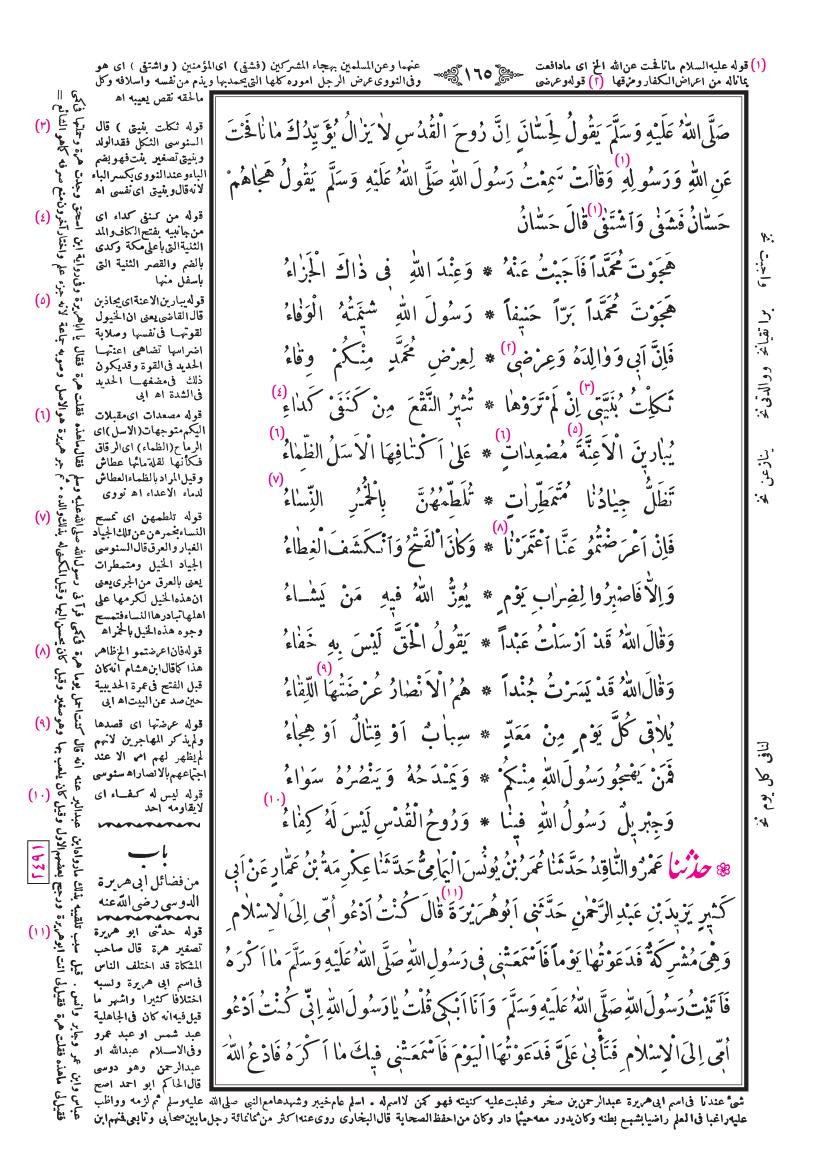 (١) قوله عليه السلام مانافحت عن الله الخ اى مادافعت
يماناله من اعراض الكفار ومزقها (٢) قوله وعرضى
﴿١٦٥﴾
عنهما وعن المسلمين بهجاء المشركين (فشفى) اى المؤمنين (واشتفى) اى هو
وفى النووى عرض الرجل اموره كلها التى يحمدبها ويذم من نفسه واسلافه وكل
مالحقه نقص يعيبه اه
صَلَّى اللهُ عَلَيْهِ وَسَلَّمَ يَقُولُ لِحَسَّانَ اِنَّ رُوحَ الْقُدُسِ لَا يَزَالُ يُؤَيِّدُكَ مَا نَافَحْتَ
عَنِ اللهِ وَرَسُولِهِ (١) وَقَالَتْ سَمِعْتُ رَسُولَ اللهِ صَلَّى اللهُ عَلَيْهِ وَسَلَّمَ يَقُولُ هَجَاهُمْ
حَسَّانُ فَشَفٰى وَاشْتَفٰى (١) قَالَ حَسَّانُ
هَجَوْتَ مُحَمَّداً فَاَجَبْتُ عَنْهُ * وَعِنْدَ اللهِ فِى ذَاكَ الْجَزَاءُ
هَجَوْتَ مُحَمَّداً بَرّاً حَنِيفاً * رَسُولَ اللهِ شِيمَتُهُ الْوَفَاءُ
فَاِنَّ اَبِى وَوَالِدَهُ وَعِرْضِى (٢) * لِعِرْضِ مُحَمَّدٍ مِنْكُمْ وِقَاءُ
ثَكِلْتُ بُنَيَّتِى (٣) اِنْ لَمْ تَرَوْهَا * تُثِيرُ النَّقْعَ مِنْ كَنَفَىْ كَدَاءِ (٤)
يُبَارِينَ الْاَعِنَّةَ (٥) مُصْعِدَاتٍ (٦) * عَلٰى اَكْتَافِهَا الْاَسَلُ الظِّمَاءُ (٦)
تَظَلُّ جِيَادُنَا مُتَمَطِّرَاتٍ * تُلَطِّمُهُنَّ بِالْخُمُرِ النِّسَاءُ (٧)
فَاِنْ اَعْرَضْتُمُو عَنَّا اعْتَمَرْنَا (٨) * وَكَانَ الْفَتْحُ وَانْكَشَفَ الْغِطَاءُ
وَاِلَّا فَاصْبِرُوا لِضِرَابِ يَوْمٍ * يُعِزُّ اللهُ فِيهِ مَنْ يَشَاءُ
وَقَالَ اللهُ قَدْ اَرْسَلْتُ عَبْداً * يَقُولُ الْحَقَّ لَيْسَ بِهِ خَفَاءُ
وَقَالَ اللهُ قَدْ يَسَّرْتُ جُنْداً * هُمُ الْاَنْصَارُ عُرْضَتُهَا (٩) اللِّقَاءُ
يُلَاقِى كُلَّ يَوْمٍ مِنْ مَعَدٍّ * سِبَابٌ اَوْ قِتَالٌ اَوْ هِجَاءُ
فَمَنْ يَهْجُو رَسُولَ اللهِ مِنْكُمْ * وَيَمْدَحُهُ وَيَنْصُرُهُ سَوَاءُ
وَجِبْرِيلٌ رَسُولُ اللهِ فِينَا * وَرُوحُ الْقُدْسِ لَيْسَ لَهُ كِفَاءُ (١٠)
حَدَّثَنَا عَمْرٌو النَّاقِدُ حَدَّثَنَا عُمَرُ بْنُ يُونُسَ الْيَمَامِىُّ حَدَّثَنَا عِكْرِمَةُ بْنُ عَمَّارٍ عَنْ اَبِى
كَثِيرٍ يَزِيدَ بْنِ عَبْدِ الرَّحْمٰنِ حَدَّثَنِى (١١) اَبُو هُرَيْرَةَ قَالَ كُنْتُ اَدْعُو اُمِّى اِلَى الْاِسْلَامِ
وَهِىَ مُشْرِكَةٌ فَدَعَوْتُهَا يَوْماً فَاَسْمَعَتْنِى فِى رَسُولِ اللهِ صَلَّى اللهُ عَلَيْهِ وَسَلَّمَ مَا اَكْرَهُ
فَاَتَيْتُ رَسُولَ اللهِ صَلَّى اللهُ عَلَيْهِ وَسَلَّمَ وَاَنَا اَبْكِى قُلْتُ يَا رَسُولَ اللهِ اِنِّى كُنْتُ اَدْعُو
اُمِّى اِلَى الْاِسْلَامِ فَتَأْبٰى عَلَىَّ فَدَعَوْتُهَا الْيَوْمَ فَاَسْمَعَتْنِى فِيكَ مَا اَكْرَهُ فَادْعُ اللهَ
واجبت نخ
برا تقيا نخ ووالدتى نخ
ينازعن نخ
لنا فى كل يوم نخ
(٣) قوله ثكلت بنيتى ) قال
السنوسى الثكل فقدالولد
وبنيتى تصغير بنت فهو بضم
الباء وعند النووى بكسر الباء
لانه قال وبنيتى اى نفسى اه
(٤) قوله من كنفى كداء اى
من جانبيه بفتح الكاف والمد
الثنية التى باعلى مكة وكدى
بالضم والقصر الثنية التى
باسفل منها
(٥) قوله يبارين الاعنة اى يجاذبن
قال القاضى يعنى ان الخيول
لقوتها فى نفسها وصلابة
اضراسها تضاهى اعنتها
الحديد فى القوة وقديكون
ذلك فى مضغها الحديد
فى الشدة اه ابى
(٦) قوله مصعدات اى مقبلات
اليكم متوجهات (الاسل) اى
الرماح (الظماء) اى الرقاق
فكأنها لقلة مائها عطاش
وقيل المراد بالظماء العطاش
لدماء الاعداء اه نووى
(٧) قوله تلطمهن اى تمسح
النساء بخمرهن عن تلك الجياد
الغبار والعرق قال السنوسى
الجياد الخيل ومتمطرات
يعنى بالعرق من الجرى يعنى
ان هذه الخيل لكرمها على
اهلها تبادرها النساء فتمسح
وجوه هذه الخيل بالخمر اه
(٨) قوله فان اعرضتمو الخ ظاهر
هذا كما قال ابن هشام انه كان
قبل الفتح فى عمرة الحديبية
حين صد عن البيت اه ابى
(٩) قوله عرضتها اى قصدها
ولم يذكر المهاجرين لانهم
لم يظهر لهم امر الا عند
اجتماعهم بالانصار اه سنوسى
(١٠) قوله ليس له كفاء اى
لايقاومه احد
باب
من فضائل ابى هريرة
الدوسى رضى الله عنه
٢٤٩١
(١١) قوله حدثنى ابو هريرة
تصغير هرة قال صاحب
المشكاة قد اختلف الناس
فى اسم ابى هريرة ونسبه
اختلافا كثيرا واشهر ما
قيل فيه انه كان فى الجاهلية
عبد شمس او عبد عمرو
وفى الاسلام عبدالله او
عبدالرحمن وهو دوسى
قال الحاكم ابو احمد اصح
شئ عندنا فى اسم ابى هريرة عبدالرحمن بن صخر وغلبت عليه كنيته فهو كمن لا اسم له . اسلم عام خيبر وشهدها مع النبى صلى الله عليه وسلم ثم لزمه وواظب
عليه راغبا فى العلم راضيا بشبع بطنه وكان يدور معه حيثما دار وكان من احفظ الصحابة قال البخارى روى عنه اكثر من ثمانمائة رجل مابين صحابى وتابعى فمنهم ابن